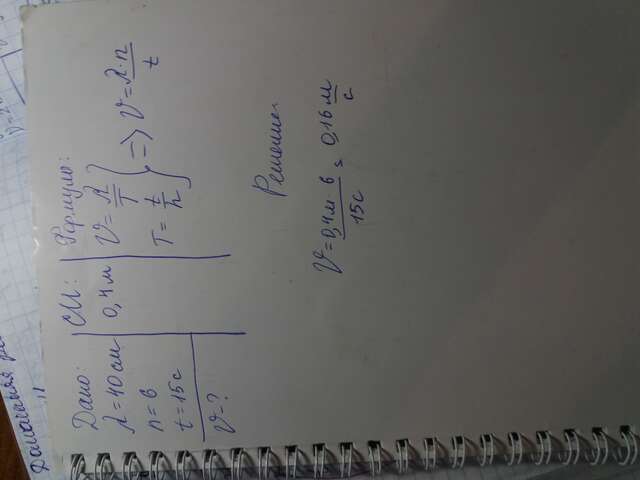 Домашняя
Дано:
λ = 40 см
n = 6
t = 15 с
V = ?
СИ:
0,4 м
Формулы:
V = λ/T
T = t/n
=> V = λ·n/t
Решение
V = 0,4 м · 6/15 с = 0,16 м/с